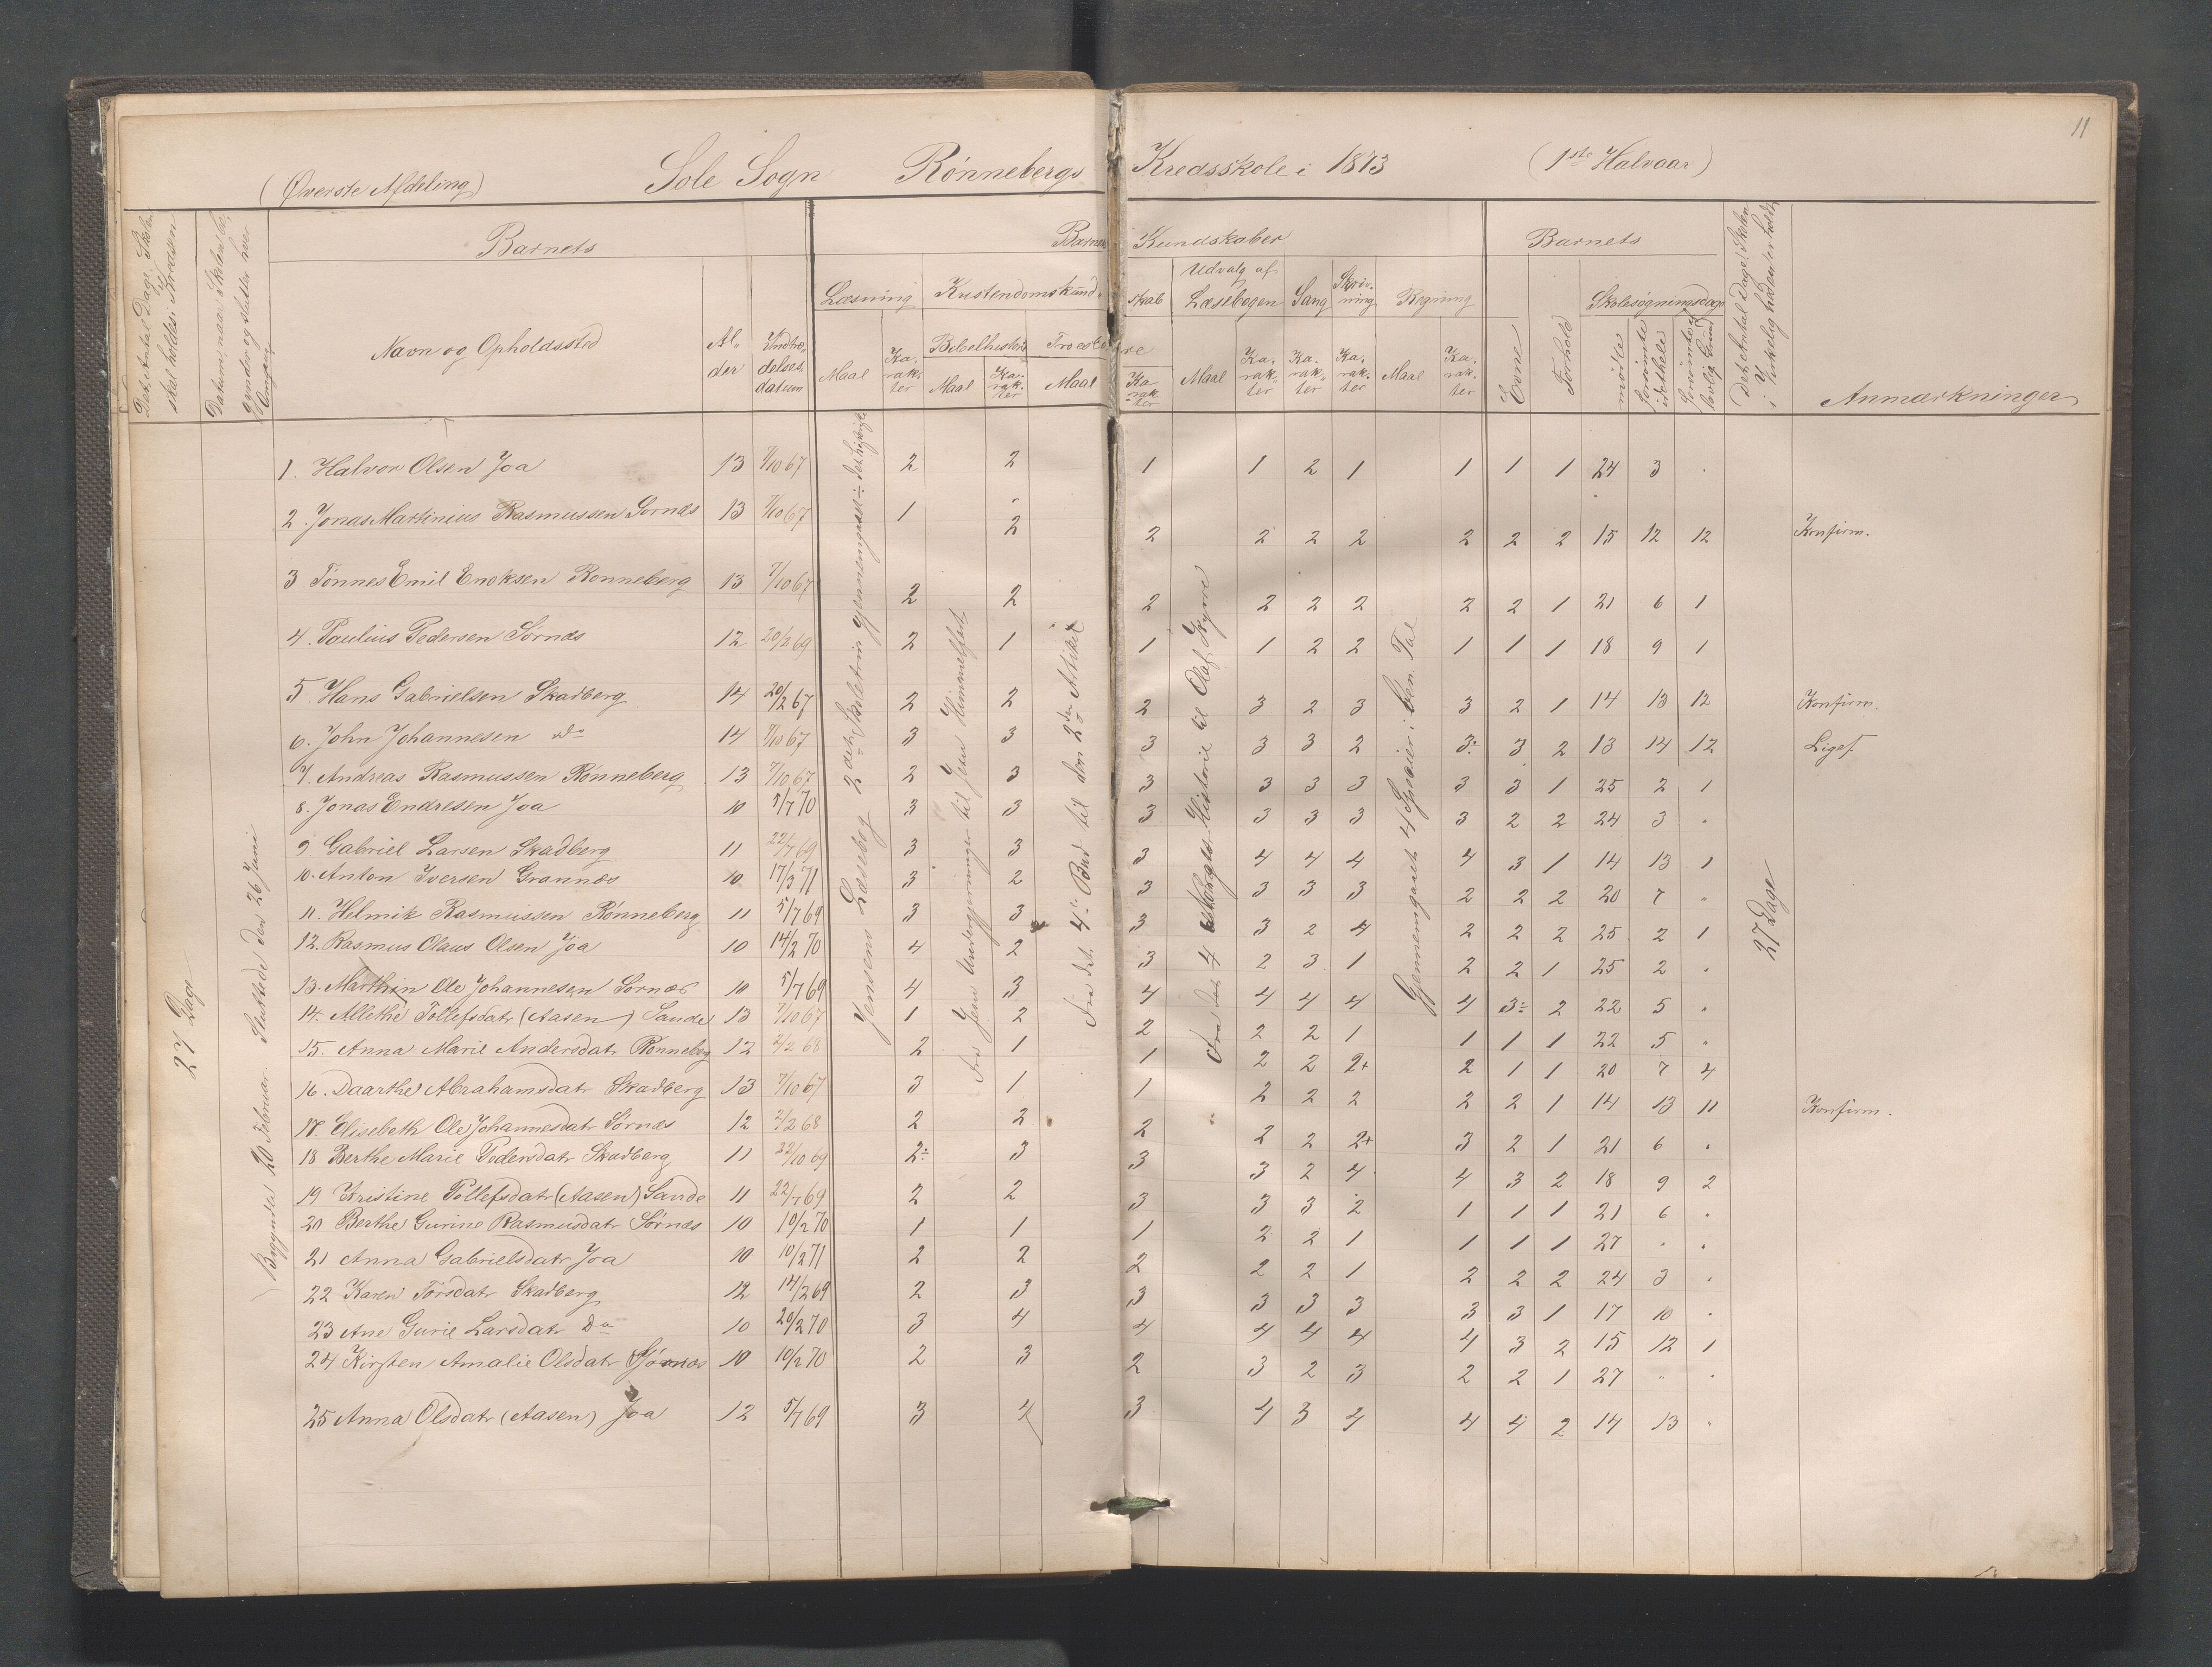 11
(Øverste Afdeling) Sole Sogn Rønnebergs Kredsskole i 1873 (1ste Halvaar)
Det Antal Dage Skolen skal holdes i Kredsen
Barnets
Barnets Kundskaber
Barnets
Det Antal Dage Skolen i Virkelighed er holdt
Navn og Opholdssted
Al-der
Indtræ-delses-datum
Læsning
Kristendomskund-skab
Udvalg af Læsebogen
Sang
Skriv-ning
Regning
Evne
Forhold
Skolesøgningsdage
Bibelhistorie
Troeslære
Maal
Ka-rak-ter
Maal
Ka-rak-ter
Maal
Ka-rak-ter
Maal
Ka-rak-ter
Ka-rak-ter
Ka-rak-ter
Maal
Ka-rak-ter
mødte
forsømte i det hele
forsømte af lovlig Grund
Anmærkninger
27 Dage
Begyndte 20 Februar. Sluttede den 26 Juni
Jensens Læsebog 2det Skoletrin gjennemgaaet
Fra Jesu til Jesu Himmelfart
Fra det 4de Bud til den 2den Artikel
Fra det 4 Historie til Olaf Kyrre
Gjennemgaaet 4 Spesier i ben. Tal
27 Dage
1. Halvor Olsen Joa 13 7/10 67 2 2 1 1 2 1 1 1 1 24 3 .
2. Jonas Martinius Rasmussen Sornæs 13 7/10 67 1 2 2 2 2 2 2 2 2 15 12 12 Konfirm.
3 Tönnes Emil Enoksen Rønneberg 13 7/10 67 2 2 2 2 2 2 2 2 1 21 6 1
4. Paulius Pedersen Sørnæs 12 20/2 69 2 1 1 1 2 2 1 1 1 18 9 1
5 Hans Gabrielsen Skadberg 14 20/2 67 2 2 2 3 2 3 3 2 1 14 13 12 Konfirm.
6. John Johannesen do 14 7/10 67 3 3 3 3 3 2 3÷ 3 2 13 14 12 Liges.
7. Andreas Rasmussen Rønneberg 13 7/10 67 2 3 3 3 3 3 3 3 1 25 2 1
8. Jonas Endresen Joa 10 5/7 70 3 3 3 3 3 3 3 2 2 24 3 .
9 Gabriel Larsen Skadberg 11 22/7 69 3 3 3 4 4 4 4 3 1 14 13 1
10. Anton Iversen Grannæs 10 17/3 71 3 2 3 3 3 3 2 2 2 20 7 "
11. Helmik Rasmussen Rønneberg 11 5/7 69 3 3 3 3 2 4 2 2 2 25 2 1
12. Rasmus Olaus Olsen Joa 10 14/2 70 4 2 3 2 3 1 2 2 1 25 2 .
13. Marthin Ole Johannesen Sornæs 10 5/7 69 4 3 4 4 4 4 4 3÷ 2 22 5 "
14. Allethe Tollefsdatr (Aasen) Sande 13 7/10 67 1 2 2 2 2 1 1 1 1 22 5 "
15. Anna Marie Andersdatr Rønneberg 12 2/2 68 2 1 1 2 2 2+ 2 1 1 20 7 4
16. Daarthe Abrahamsdatr Skadberg 13 7/10 67 3 1 1 2 2 2 2 2 1 14 13 11 Konfirm.
17. Elisebeth Ole Johannesdatr Sørnæs 12 2/2 68 2 2 2 2 2 2+ 3 2 1 21 6 .
18 Berthe Marie Pedersdatr Skadberg 11 22/10 69 2÷ 3 3 3 2 4 4 3 2 18 9 2
19 Kristine Tollefsdatr (Aasen) Sande 11 22/7 69 2 2 3 3 3 2 1 1 1 21 6 .
20 Berthe Gurine Rasmusdatr Sørnæs 10 10/2 70 1 1 1 2 2 1 1 1 1 27 . .
21 Anna Gabrielsdatr Joa 10 10/2 71 2 2 2 2 2 1 2 2 2 24 3 .
22 Karen Torsdatr Skadberg 12 14/2 69 2 3 3 3 3 3 3 3 1 17 10 .
23 Ane Gurie Larsdatr Do 10 20/2 70 3 4 4 4 4 4 4 3 2 15 12 1
24 Kirsten Amalie Olsdatr Sørnæs 10 10/2 70 2 3 2 3 2 3 2 2 1 27 " .
25 Anna Olsdatr (Aasen) Joa 12 5/7 69 3 4 3 4 3 4 4 4 2 14 13 .